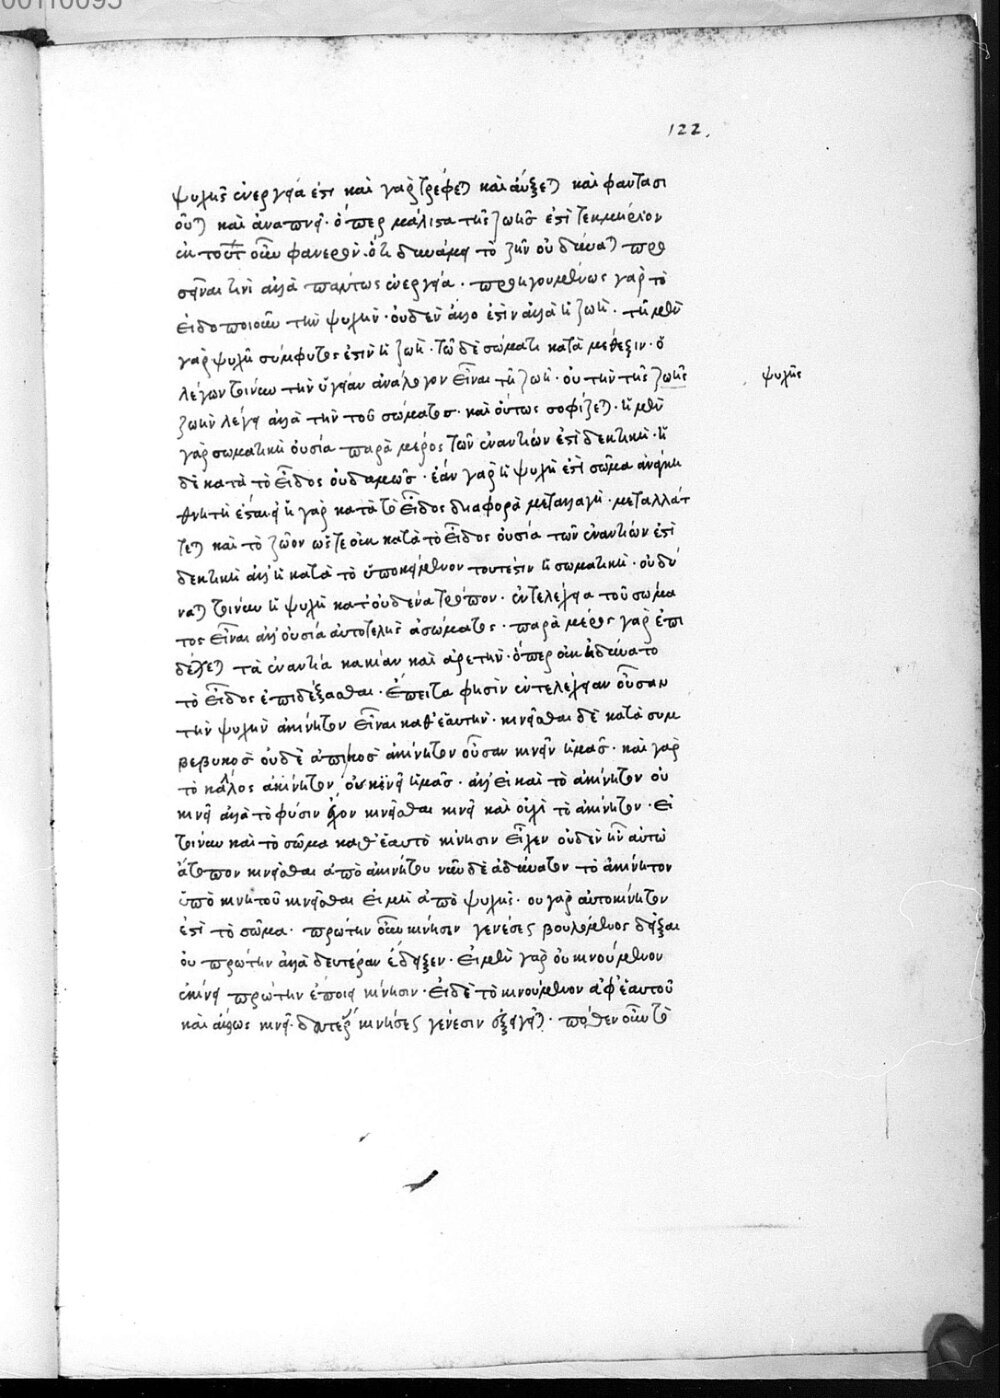 00110095
122.
ψυχῆς ἐνεργεία ἐστι καὶ γὰρ τρέφεται καὶ αὔξεται καὶ φαντασι
οῦται καὶ ἀναπνεῖ· ὅπερ μάλιστα τῆς ζωῆς ἐστὶ τεκμήριον
ἐκ τούτου οὖν φανερὸν ὅτι δυνάμει τὸ ζῆν οὐ δύναται προ
σεῖναι τινὶ ἀλλὰ πάντως ἐνεργεία. προηγουμένως γὰρ τὸ
εἰδοποιοῦν τὴν ψυχὴν· οὐδὲν ἄλλο ἐστὶν ἀλλὰ ἡ ζωή. τῆ μὲν
γὰρ ψυχῆ σύμφυτος ἐστὶν ἡ ζωή. τῶ δὲ σώματι κατὰ μέθεξιν· ὁ
λέγων τοίνυν τὴν ὑγείαν ἀνάλογον εἶναι τῆ ζωῆ· οὐ τὴν τῆς ζωῆς
ψυχῆς
ζωὴν λέγει ἀλλὰ τὴν τοῦ σώματος. καὶ οὕτως σοφίζεται. ἡ μὲν
γὰρ σωματικὴ οὐσία παρὰ μέρος τῶν ἐναντίων ἐστὶ δεκτική· ἡ
δὲ κατὰ τὸ εἶδος οὐδαμῶς· ἐὰν γὰρ ἡ ψυχὴ ἐστὶ σῶμα ἀνάγκη
θνητὴ ἔσται ἡ γὰρ κατὰ τὸ εἶδος διαφορὰ μεταλλαγῆ· μεταλλάτ
τεται καὶ τὸ ζῶον ὥστε οὐκ κατὰ τὸ εἶδος οὐσία τῶν ἐναντίων ἐστὶ
δεκτικὴ ἀλλ' ἡ κατὰ τὸ ὑποκείμενον τουτέστιν ἡ σωματική· οὐ δύ
ναται τοίνυν ἡ ψυχὴ κατ' οὐδένα τρόπον. ἐντελέχεια τοῦ σώμα
τος εἶναι ἀλλ' οὐσία αὐτοτελὴς ἀσώματος. παρὰ μέρος γὰρ ἐπι
δέχεται τὰ ἐναντία κακίαν καὶ ἀρετὴν· ὅπερ οὐκ ἠδύνατο
τὸ εἶδος ἐπιδέξασθαι. ἔπειτα φησὶν ἐντελέχειαν οὖσαν
τὴν ψυχὴν ἀκίνητον εἶναι καθ' ἑαυτὴν. κινεῖσθαι δὲ κατὰ συμ
βεβηκὸς οὐδὲ ἀπεικὸς ἀκίνητον οὖσαν κινεῖν ἡμᾶς. καὶ γὰρ
τὸ κάλος ἀκίνητον ὂν κινεῖ ἡμᾶς. ἀλλ' εἰ καὶ τὸ ἀκίνητον οὐ
κινεῖ ἀλλὰ τὸ φύσιν ἔχον κινεῖσθαι κινεῖ καὶ οὐχὶ τὸ ἀκίνητον. εἰ
τοίνυν καὶ τὸ σῶμα καθ' ἑαυτὸ κίνησιν εἶχεν οὐδὲν ἦν αὐτῶ
ἄτοπον κινεῖσθαι ἀπὸ ἀκινήτου νῦν δὲ ἀδύνατον τὸ ἀκίνητον
ὑπὸ κινητοῦ κινεῖσθαι εἰ μὴ ἀπὸ ψυχῆς. οὐ γὰρ αὐτοκίνητον
ἐστὶ τὸ σῶμα· πρώτην οὖν κίνησιν γενέσεως βουλόμενος δεῖξαι
οὐ πρώτην ἀλλὰ δευτέραν ἔδειξεν. εἰ μὲν γὰρ οὐ κινούμενον
ἐκίνει πρώτην ἐποίει κίνησιν· εἰ δὲ τὸ κινούμενον ἀφ' ἑαυτοῦ
καὶ ἄλλως κινεῖ· δευτέρας κινήσεως γένεσιν ἐξηγεῖται· πόθεν οὖν τὸ